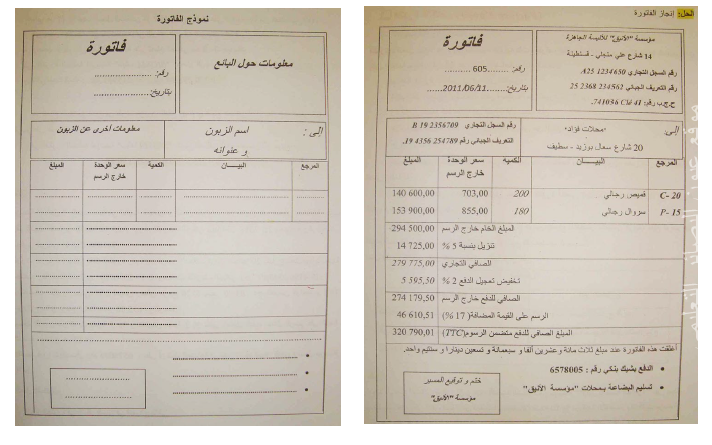 نموذج الفاتورة
معلومات حول البائع
فاتورة
رقم: ....................
بتاريخ: ....................
إلى : اسم الزبون
و عنوانه
معلومات أخرى عن الزبون
المرجع البيـــــان الكمية سعر الوحدة خارج الرسم المبلغ
الحل: إنجاز الفاتورة
مؤسسة "الأنيق" للألبسة الجاهزة
14 شارع علي منجلي - قسنطينة
رقم السجل التجاري A25 1234650
رقم التعريف الجبائي 234562 2368 25
ح.ج.ب رقم: 741036 Clé 41.
فاتورة
رقم: .......605 .........
بتاريخ:.......2011/06/11...
إلى: "محلات فؤاد"
20 شارع سعال بوزيد - سطيف
رقم السجل التجاري B 19 2356709
التعريف الجبائي رقم 254789 4356 19.
المرجع البيـــــان الكمية سعر الوحدة خارج الرسم المبلغ
C- 20 قميص رجالي 200 703,00 140 600,00
P- 15 سروال رجالي 180 855,00 153 900,00
المبلغ الخام خارج الرسم 294 500,00
تنزيل بنسبة 5 % 14 725,00
الصافي التجاري 279 775,00
تخفيض تعجيل الدفع 2 % 5 595,50
الصافي للدفع خارج الرسم 274 179,50
الرسم على القيمة المضافة( 17 %) 46 610,51
المبلغ الصافي للدفع متضمن الرسوم(TTC) 320 790,01
أغلقت هذه الفاتورة عند مبلغ ثلاث مائة وعشرين ألفا و سبعمائة و تسعين دينارا و سنتيم واحد.
• الدفع بشيك بنكي رقم : 6578005
• تسليم البضاعة بمحلات "مؤسسة الأنيق"
ختم و توقيع المسير
مؤسسة "الأنيق"
موقع عيون البصائر التعليمي